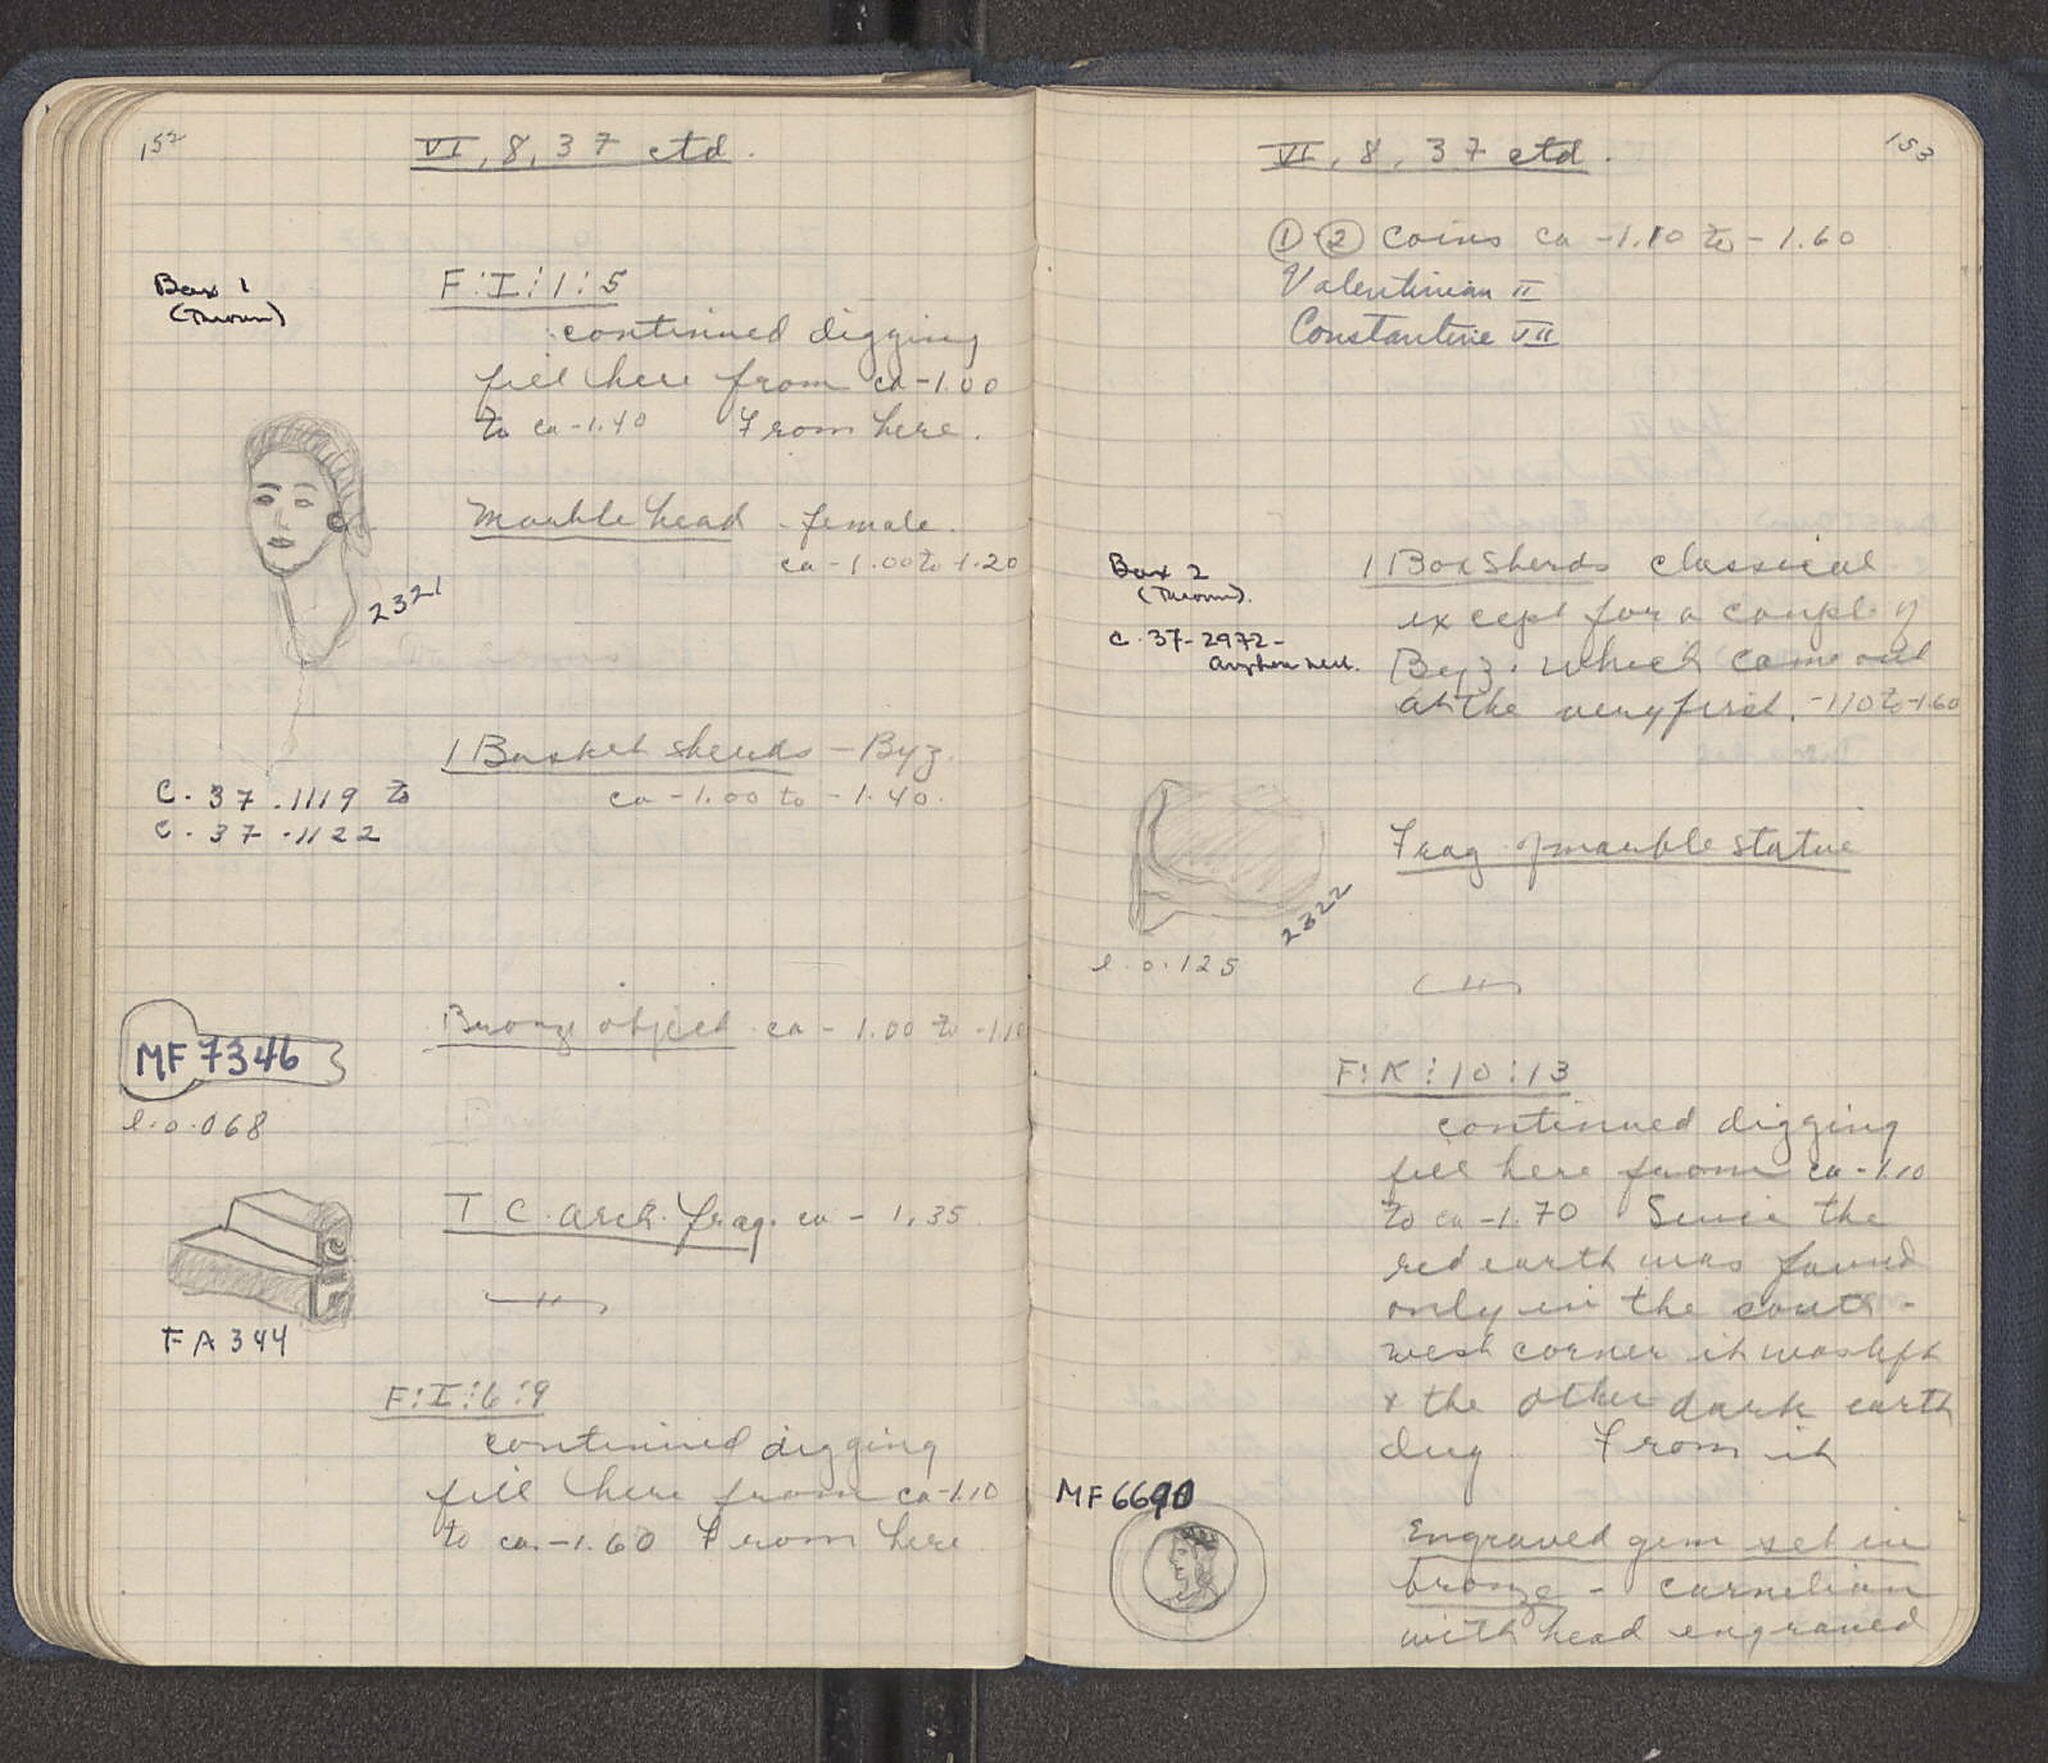 152
VI, 8, 37 ctd.
Box 1
(Thrown)
F:I:1:5
continued digging
fill here from ca -1.00
to ca -1.40 From here.
Marble head - female.
ca -1.00 to -1.20
2321
1 Basket sherds - Byz.
ca -1.00 to -1.40.
C. 37.1119 to
C. 37.1122
Bronze object ca - 1.00 to -1.10
MF 7346
l. 0.068
T C. arch. frag. ca - 1.35
FA 344
F:I:6:9
continued digging
fill here from ca -1.10
to ca. -1.60 From here
153
VI, 8, 37 ctd.
① - ② Coins ca -1.10 to -1.60
Valentinian II
Constantine VII
Box 2
(Thrown).
C. 37-2972-
1 Box Sherds classical
except for a couple of
Byz. which came out
at the very first. -1.10 to -1.60
Frag. of marble statue
2322
l. 0.125
F:K:10:13
continued digging
fill here from ca -1.10
to ca -1.70 Since the
red earth was found
only in the south-
west corner it was left
& the other dark earth
dug. From it
MF 6690
Engraved gem set in
bronze - carnelian
with head engraved